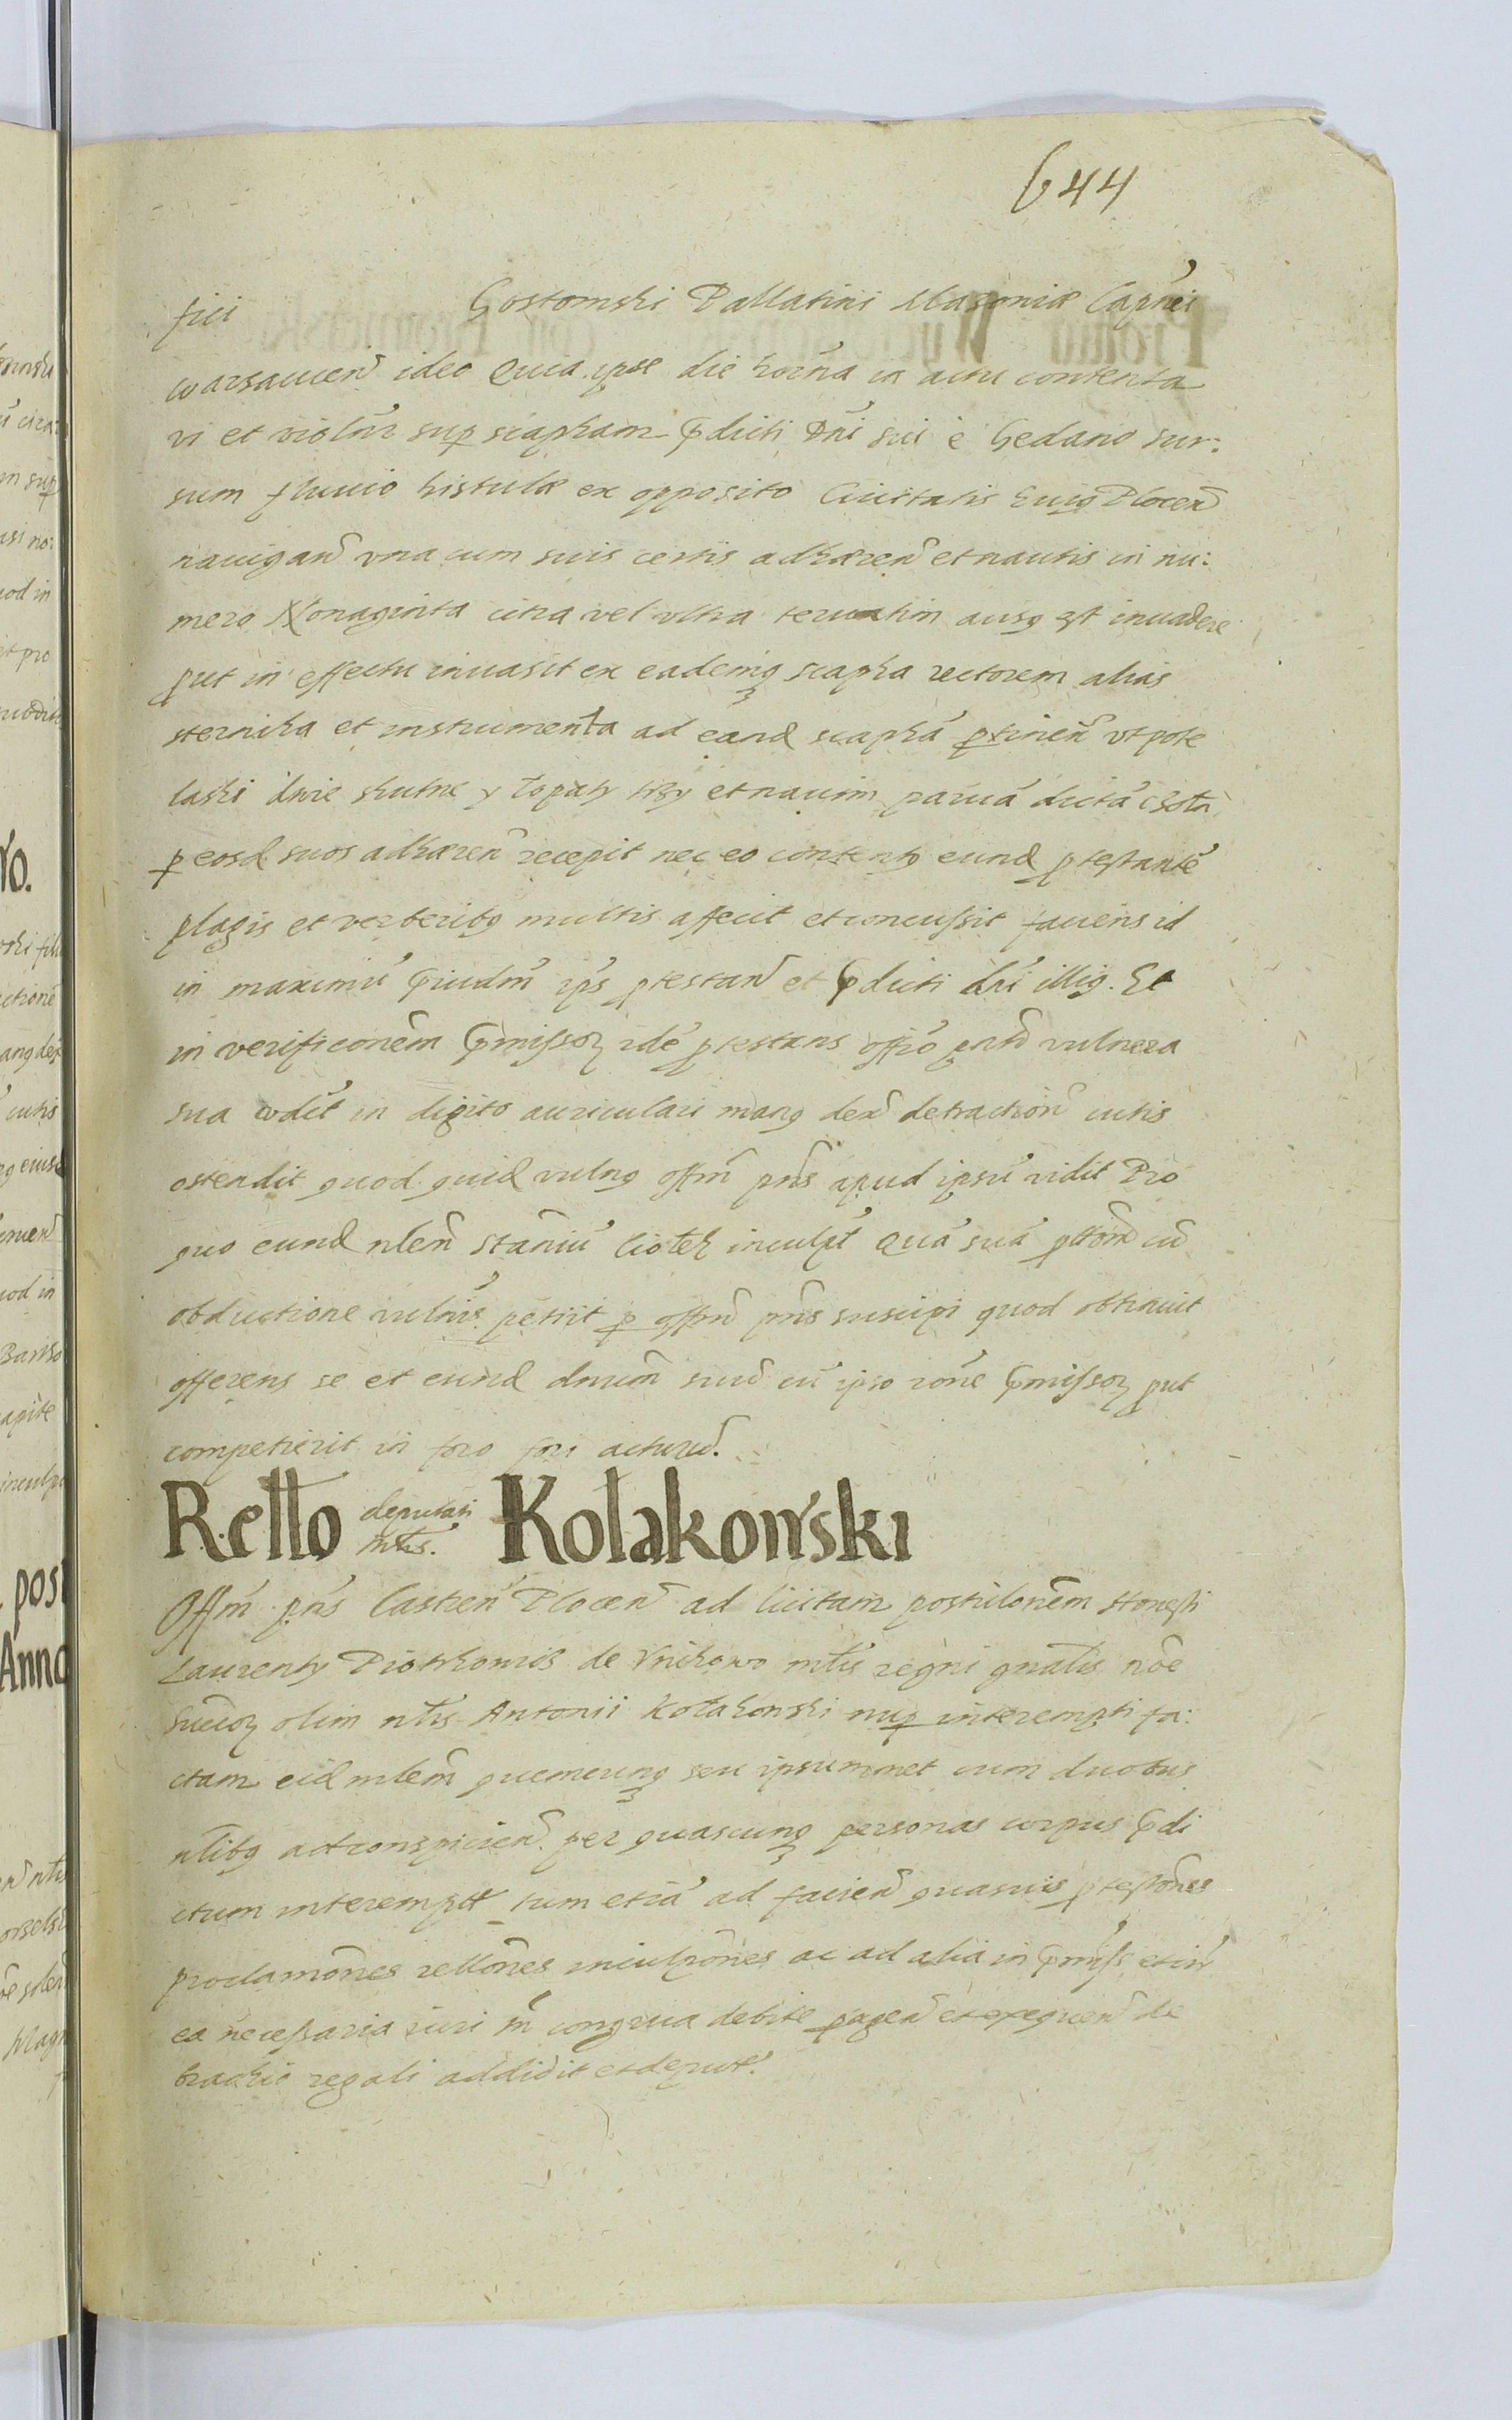 644
fici Gostomski Pallatini Masoniæ Capnei
warsauien ideo Quia ipse die horna in actu contenta
vi et violnr sup scapham pdicti Dni sui è Gedano sur:
sum fluuio histulæ ex opposito Ciuitatis huig Plocen
nauigan vna cum suis certis adhæren et nautis in nu:
mero Nonaginta citra vel vltra ausg est inuadere
put in effectu inuasit ex eademq scapha rectorem alias
sternika et instrumenta ad eand scaphá ptinen vt pote
laski dwie y łopaty trzy et nauim paruá dictá
p eosd suos adhæren recepit nec eo contentg eund ptestanté
plagis et verberibg multis affecit et concussit faciens id
in maximú piudm ips ptestan et pdicti dni illig. Et
in verificonem pmissoz idé ptestans offio pnti vulnera
sua in digito auriculari mang dex detraction cutis
ostendit quod quid vulng offm pns apud ipsú vidit Pro
quo eund nlem Staniú inculpt Quá suá pttom cú
obductione vulnis petiit p offm pns suscipi quod obtinuit
offerens se et eund dnum suú cú ipso rone pmissoz put
competierit in foro fori acturú.
Retto deputati mlis. Kołakowski
Offm pns Castren Plocen ad licitam postulonem Honesti
Laurenty Piotrkowic de mlis regni gnalis noe
Succoz olim nlis Antonii Kołakowski nup interempti fa:
ctam eid mlem quemcunq seu ipsummet cum duobus
nlibg ad conspicien per quascunq personas corpus pdi
ctum interempt tum etiá ad facien quasuis ptestones
proclamónes rellónes inculpónes ac ad alia in pmiss et cir
ea necessaria iuri congrua debite pagen et exequen de
brachio regali addidit et deput.